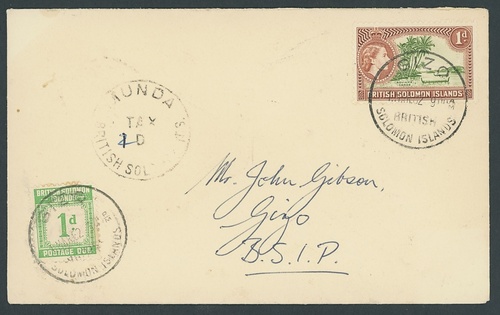 1d
BRITISH SOLOMON ISLANDS
GIZO
BRITISH
SOLOMON ISLANDS
MUNDA
TAX
D
BRITISH SOL
Mr. John Gibson,
Gizo
B.S.I.P.
BRITISH SOLOMON
ISLANDS
1d
POSTAGE DUE
SOLOMON ISLANDS